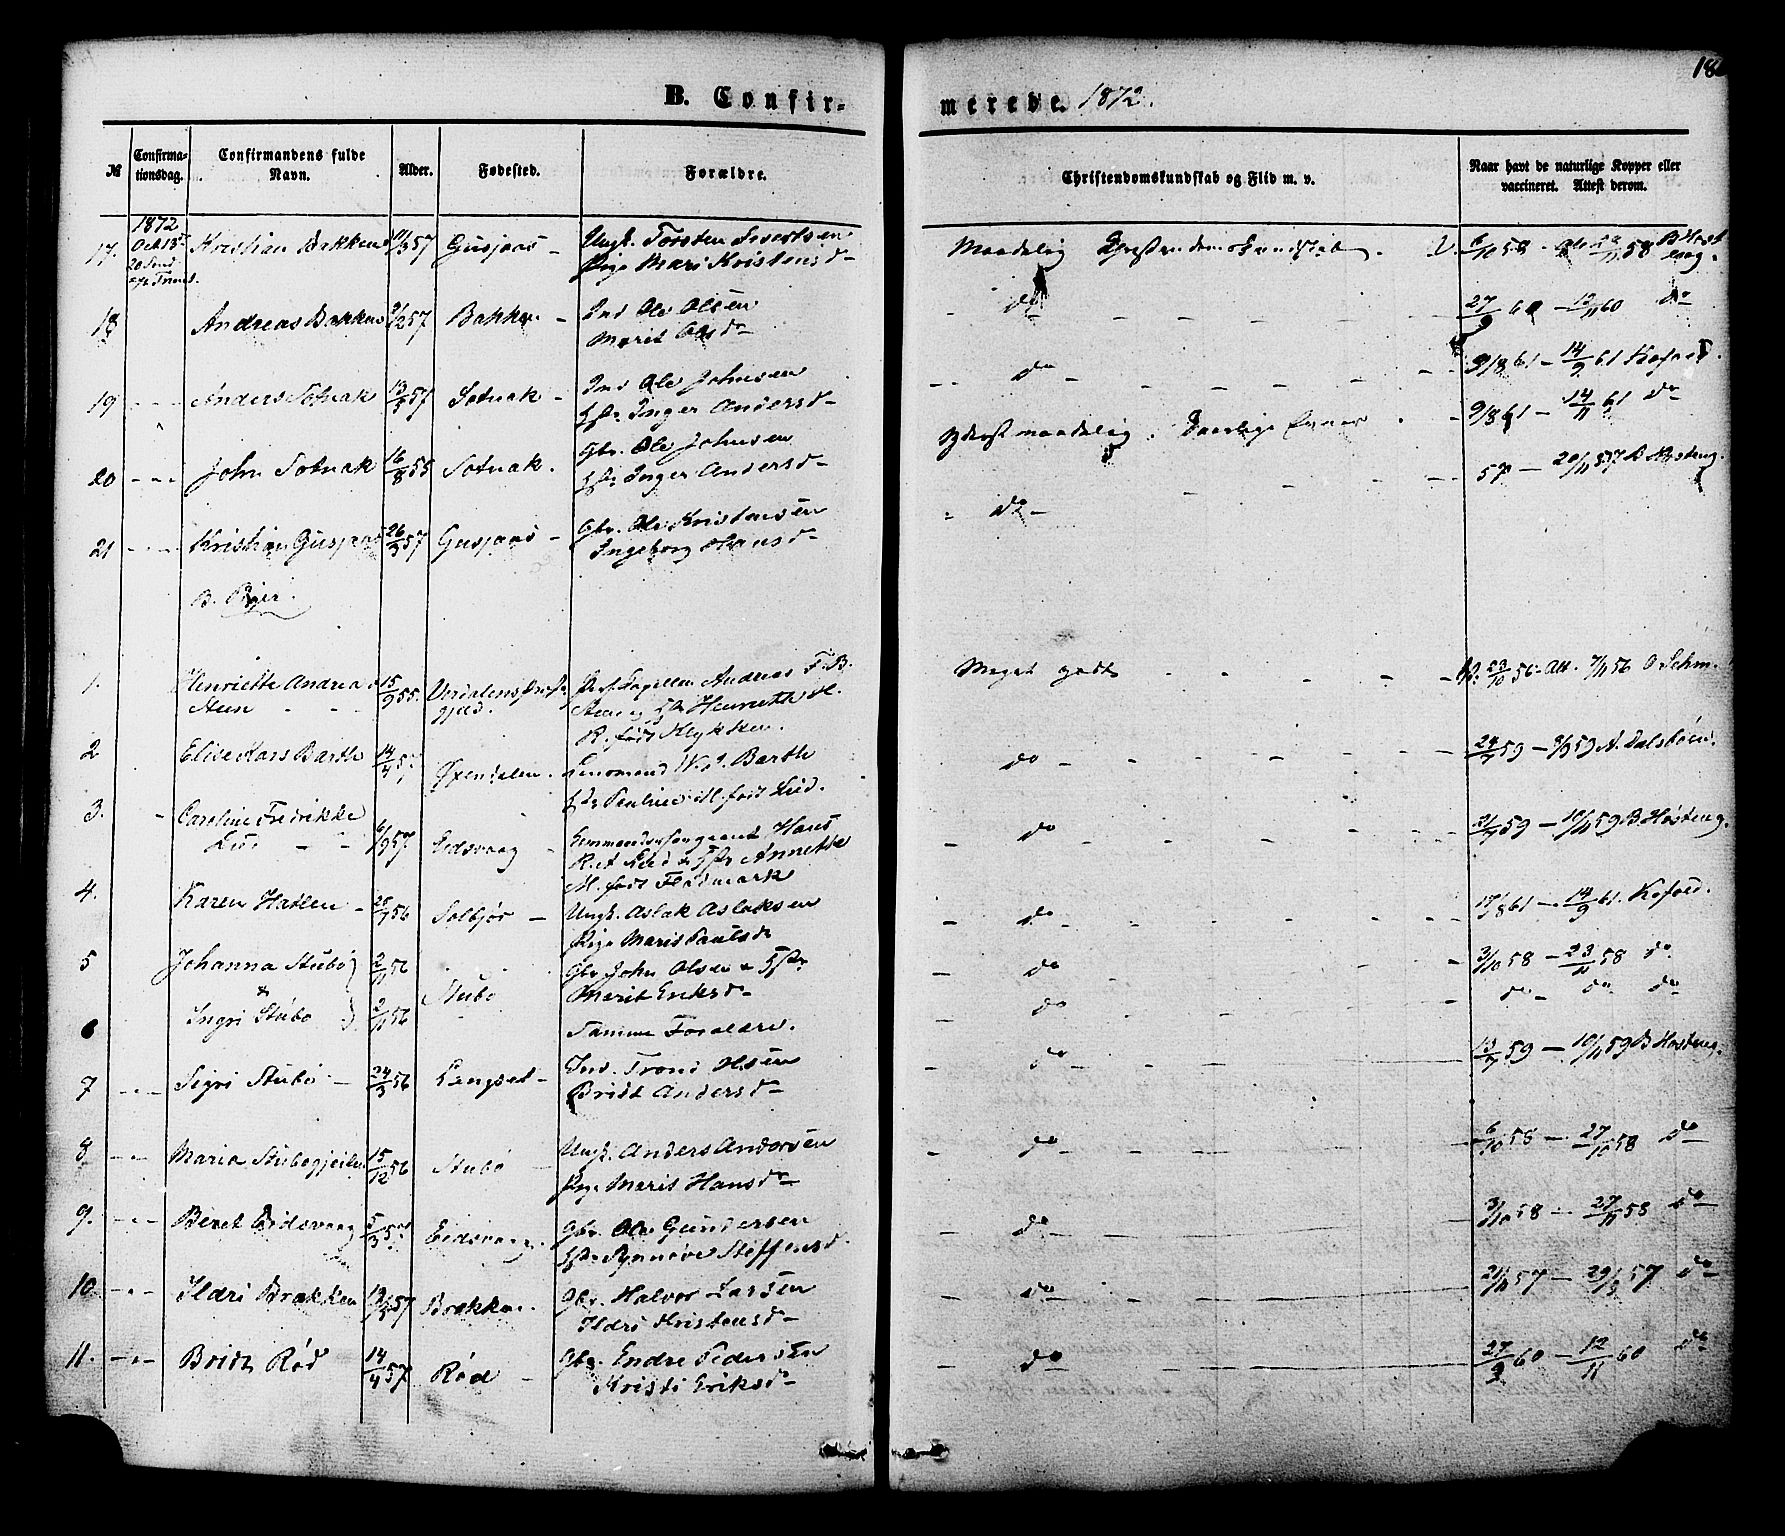 18
B. Confirmerede. 1872.
№ Confirmationsdag. Confirmandens fulde Navn. Alder. Fødested. Forældre. Christendomskundskab og Flid m. v. Naar havt de naturlige Kopper eller vaccineret. Attest derom.
1872
17. Oct 13de Kristian Bakken 57 Gusjaas - Ungk. Torsten Sivertsen Maadelig Christendomskundskab. V. 6/10 58 - 58 B Høst
20 Sønd Pige Mari Kristensd eng.
e/r Trinit.
18 Andreas Bakken 57 Bakken - Ind Ole Olsen do 27/9 60 - 12/11 60 do
Marit Olsd
19 Anders Sotnak 13/5 57 Sotnak - Ind Ole Johnsen do 9/8 61 - 14/9 61 Kofoed.
Hst Inger Andersd
20 John Sotnak 16/8 55 Sotnak. Gbr. Ole Johnsen Yderst maadelig. Daarlige Evner 9/8 61 - 14/11 61 do
Hst Inger Andersd
21 Kristian Gusjaas 26/3 57 Gusjaas - Gbr. Ole Kristensen do 57 - 20/11 57 B Høsteng.
Ingeborg Hansd
B. Piger.
1. Henriette Andrea 15/9 55. Verdalens Præste Pers. Capellan Andreas F. B. Meget godt V. 23/10 56 - Att. 7/11 56 O Schm.
Steen gjeld. Steen og H Henriette M.
R. født Klykken.
2 Elise Kars Barth 14/4 57 Øxendalen. Lensmand W. Barth do 24/7 59 - 8/9 59 A. Dalsbøen.
Hst Pauline M. født Lied.
3. Caroline Fredrikke 6/9 57 Eidsvaag - Kommandersergeant Hans do 21/7 59 - 10/11 59 B Høsteng.
R. et Lied & Hst Annette
M. født Flodmark
4. Karen Hatlen - 28/7 56 Solbjør - Ungk. Aslak Aslaksen do 17/8 61 - 14/9 61. Kofoed.
Pige Marit Paulsd
5 Johanna Stubø 2/11 56 Stubø Gbr John Olsen & Hst do 3/10 58 - 23/11 58 do
& Marit Eriksd
6 Ingri Stubø 2/11 56 Samme Forældre. do do do do
7 Sigri Stubø - 24/3 56 Langset - Ind. Trond Olsen do 13/7 59 - 10/11 59 B Høsteng.
Bridt Andersd
8 Maria Stubøgjeilen 15/12 56 Stubø - Ungk. Anders Andersen do 6/10 58 - 27/10 58 do
Pig. Marit Hansd
9. Beret Eidsvaag 5/3 57 Eidsvaag. Gbr. Ole Gundersen do 3/10 58 - 27/11 58 do
Hst Synnøve Steffensd.
10 Ildri Brakken 57 Brakken. Gbr. Halvor Larsen do 57 - 29/9 57 do
Ildri Kristensd
11. Bridt Rød 14/4 57 Rød - Gbr. Endre Pedersen do 27/9 60 - 12/11 60 do
Kristi Eriksd